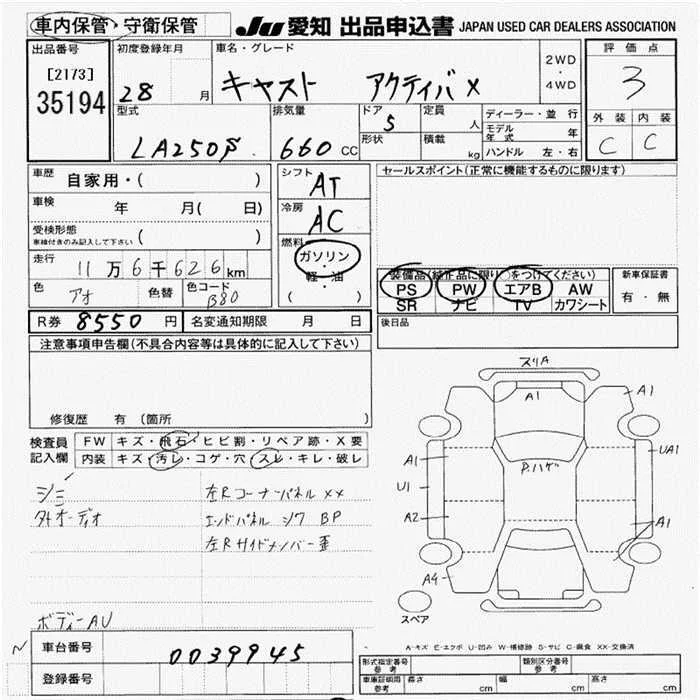 車内保管・守衛保管
JU 愛知 出品申込書 JAPAN USED CAR DEALERS ASSOCIATION
出品番号
[2173]
35194
初度登録年月
28 月
車名・グレード
キャスト アクティバX
2WD
・
4WD
評価点
3
外装 内装
C C
型式
LA250S
排気量
660 CC
ドア
5
形状
定員
人
積載
kg
ディーラー・並行
モデル年式 年
ハンドル 左・右
車歴
自家用・( )
車検
年 月( 日)
受検形態
車検付きのみ記入して下さい ( )
走行
11万6千626km
色
アオ
色替
色コード
B80
シフト
AT
冷房
AC
燃料
ガソリン
・
軽・油
( )
セールスポイント(正常に機能するものに限ります)
装備品(純正品に限り○をつけてください)
PS PW エアB AW
SR ナビ TV カワシート
新車保証書
有・無
後日品
R券 8550 円
名変通知期限 月 日
注意事項申告欄(不具合内容等は具体的に記入して下さい)
修復歴 有(箇所 )
検査員記入欄
FW キズ・飛石・ヒビ割・リペア跡・X要
内装 キズ・汚レ・コゲ・穴・スレ・キレ・破レ
外オーディオ
ボディーAU
左Rコーナーパネル XX
エンドパネル シワ BP
左Rサイドメンバー歪
スリA
A1
A1
P.ハゲ
A1
U1
A2
A4
UA1
A1
スペア
A-キズ E-エクボ U-凹み W-補修跡 S-サビ C-腐食 XX-交換済
車台番号
0039945
登録番号
形式指定番号 参考
類別区分番号 参考
車庫証明用 参考
長さ cm
幅 cm
高さ cm